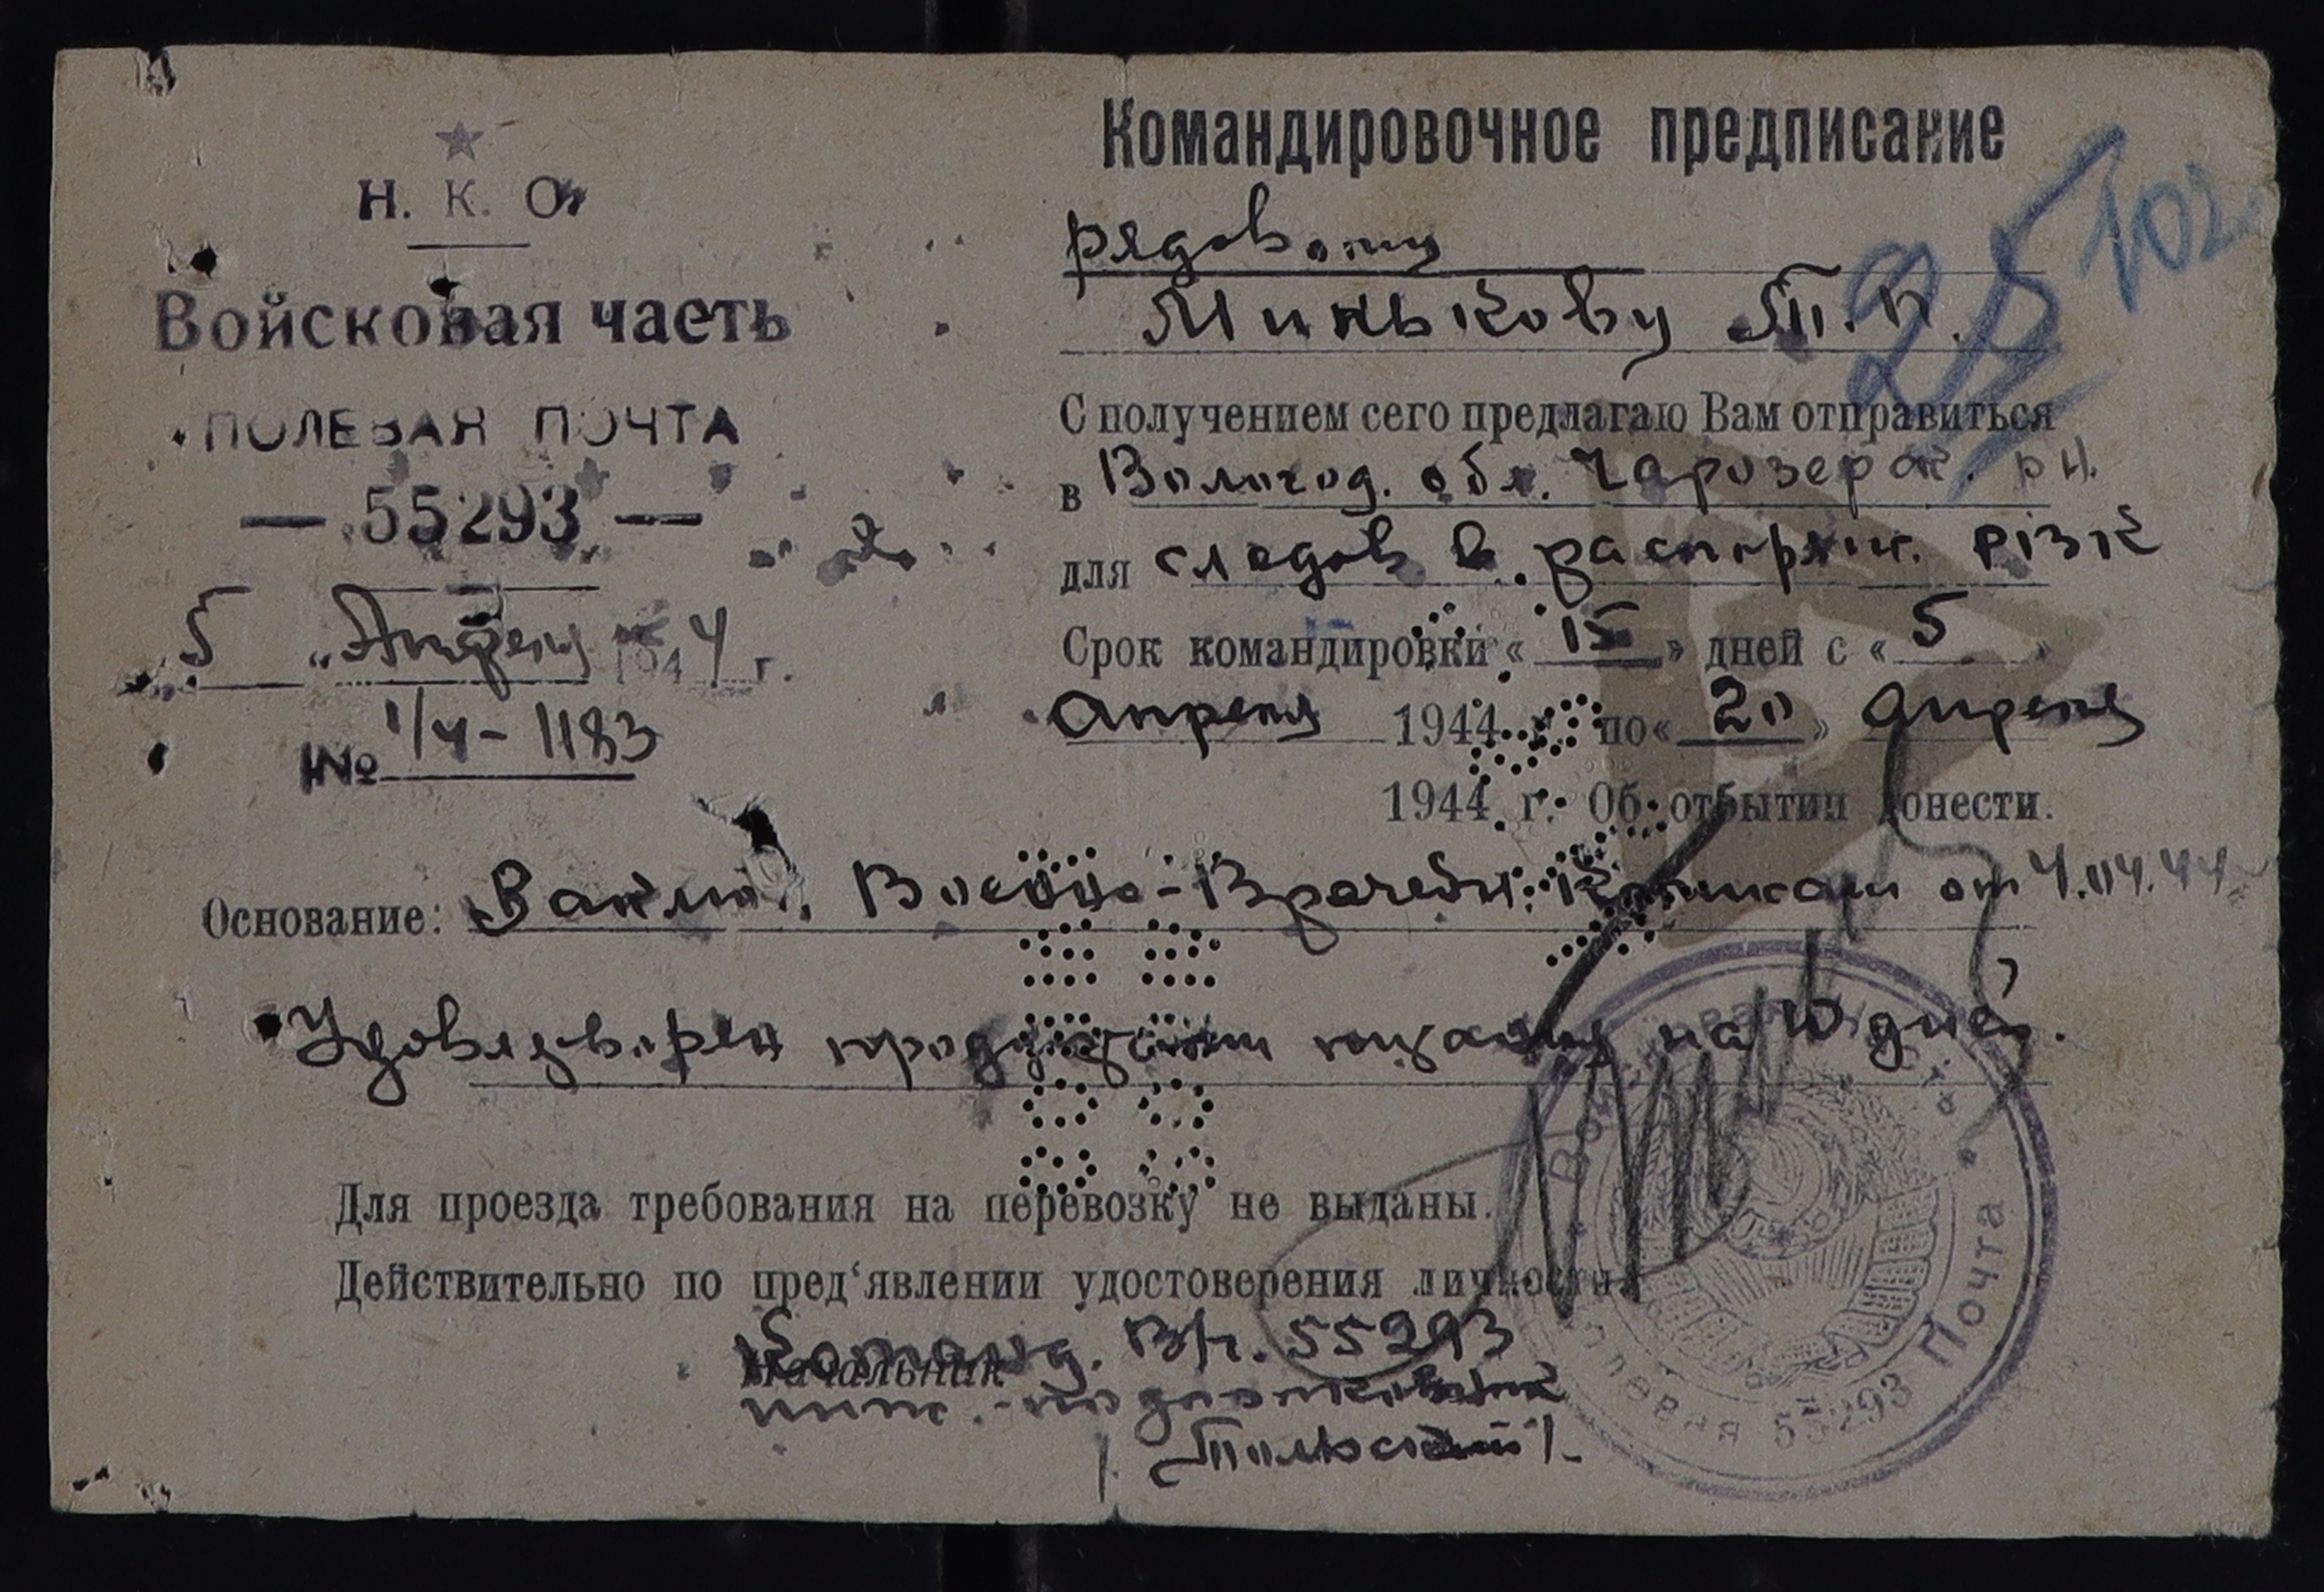 Н. К. О.
Войсковая часть
ПОЛЕВАЯ ПОЧТА
— 55293 —
5 „Апреля 1944 г.
№ 1/4-1183
Командировочное предписание
рядовому
Минькову Т. П.
25 102
С получением сего предлагаю Вам отправиться
в Вологод. обл. Чарозерск. р н.
для следов в распоряж. РВК
Срок командировки « 15 » дней с « 5 »
Апреля 1944 г. по « 20 » Апреля
1944 г. Об отбытии донести.
Основание: Заключ. Военно-Врачебн. от 4.04.44
Удовлетворен продуктами питания на 10 дней.
Для проезда требования на перевозку не выданы.
Действительно по пред‘явлении удостоверения личности
Команд. В/ч. 55293
Начальник
инж.-подполковник
/Польский/.
Войсковая часть Полевая Почта 55293